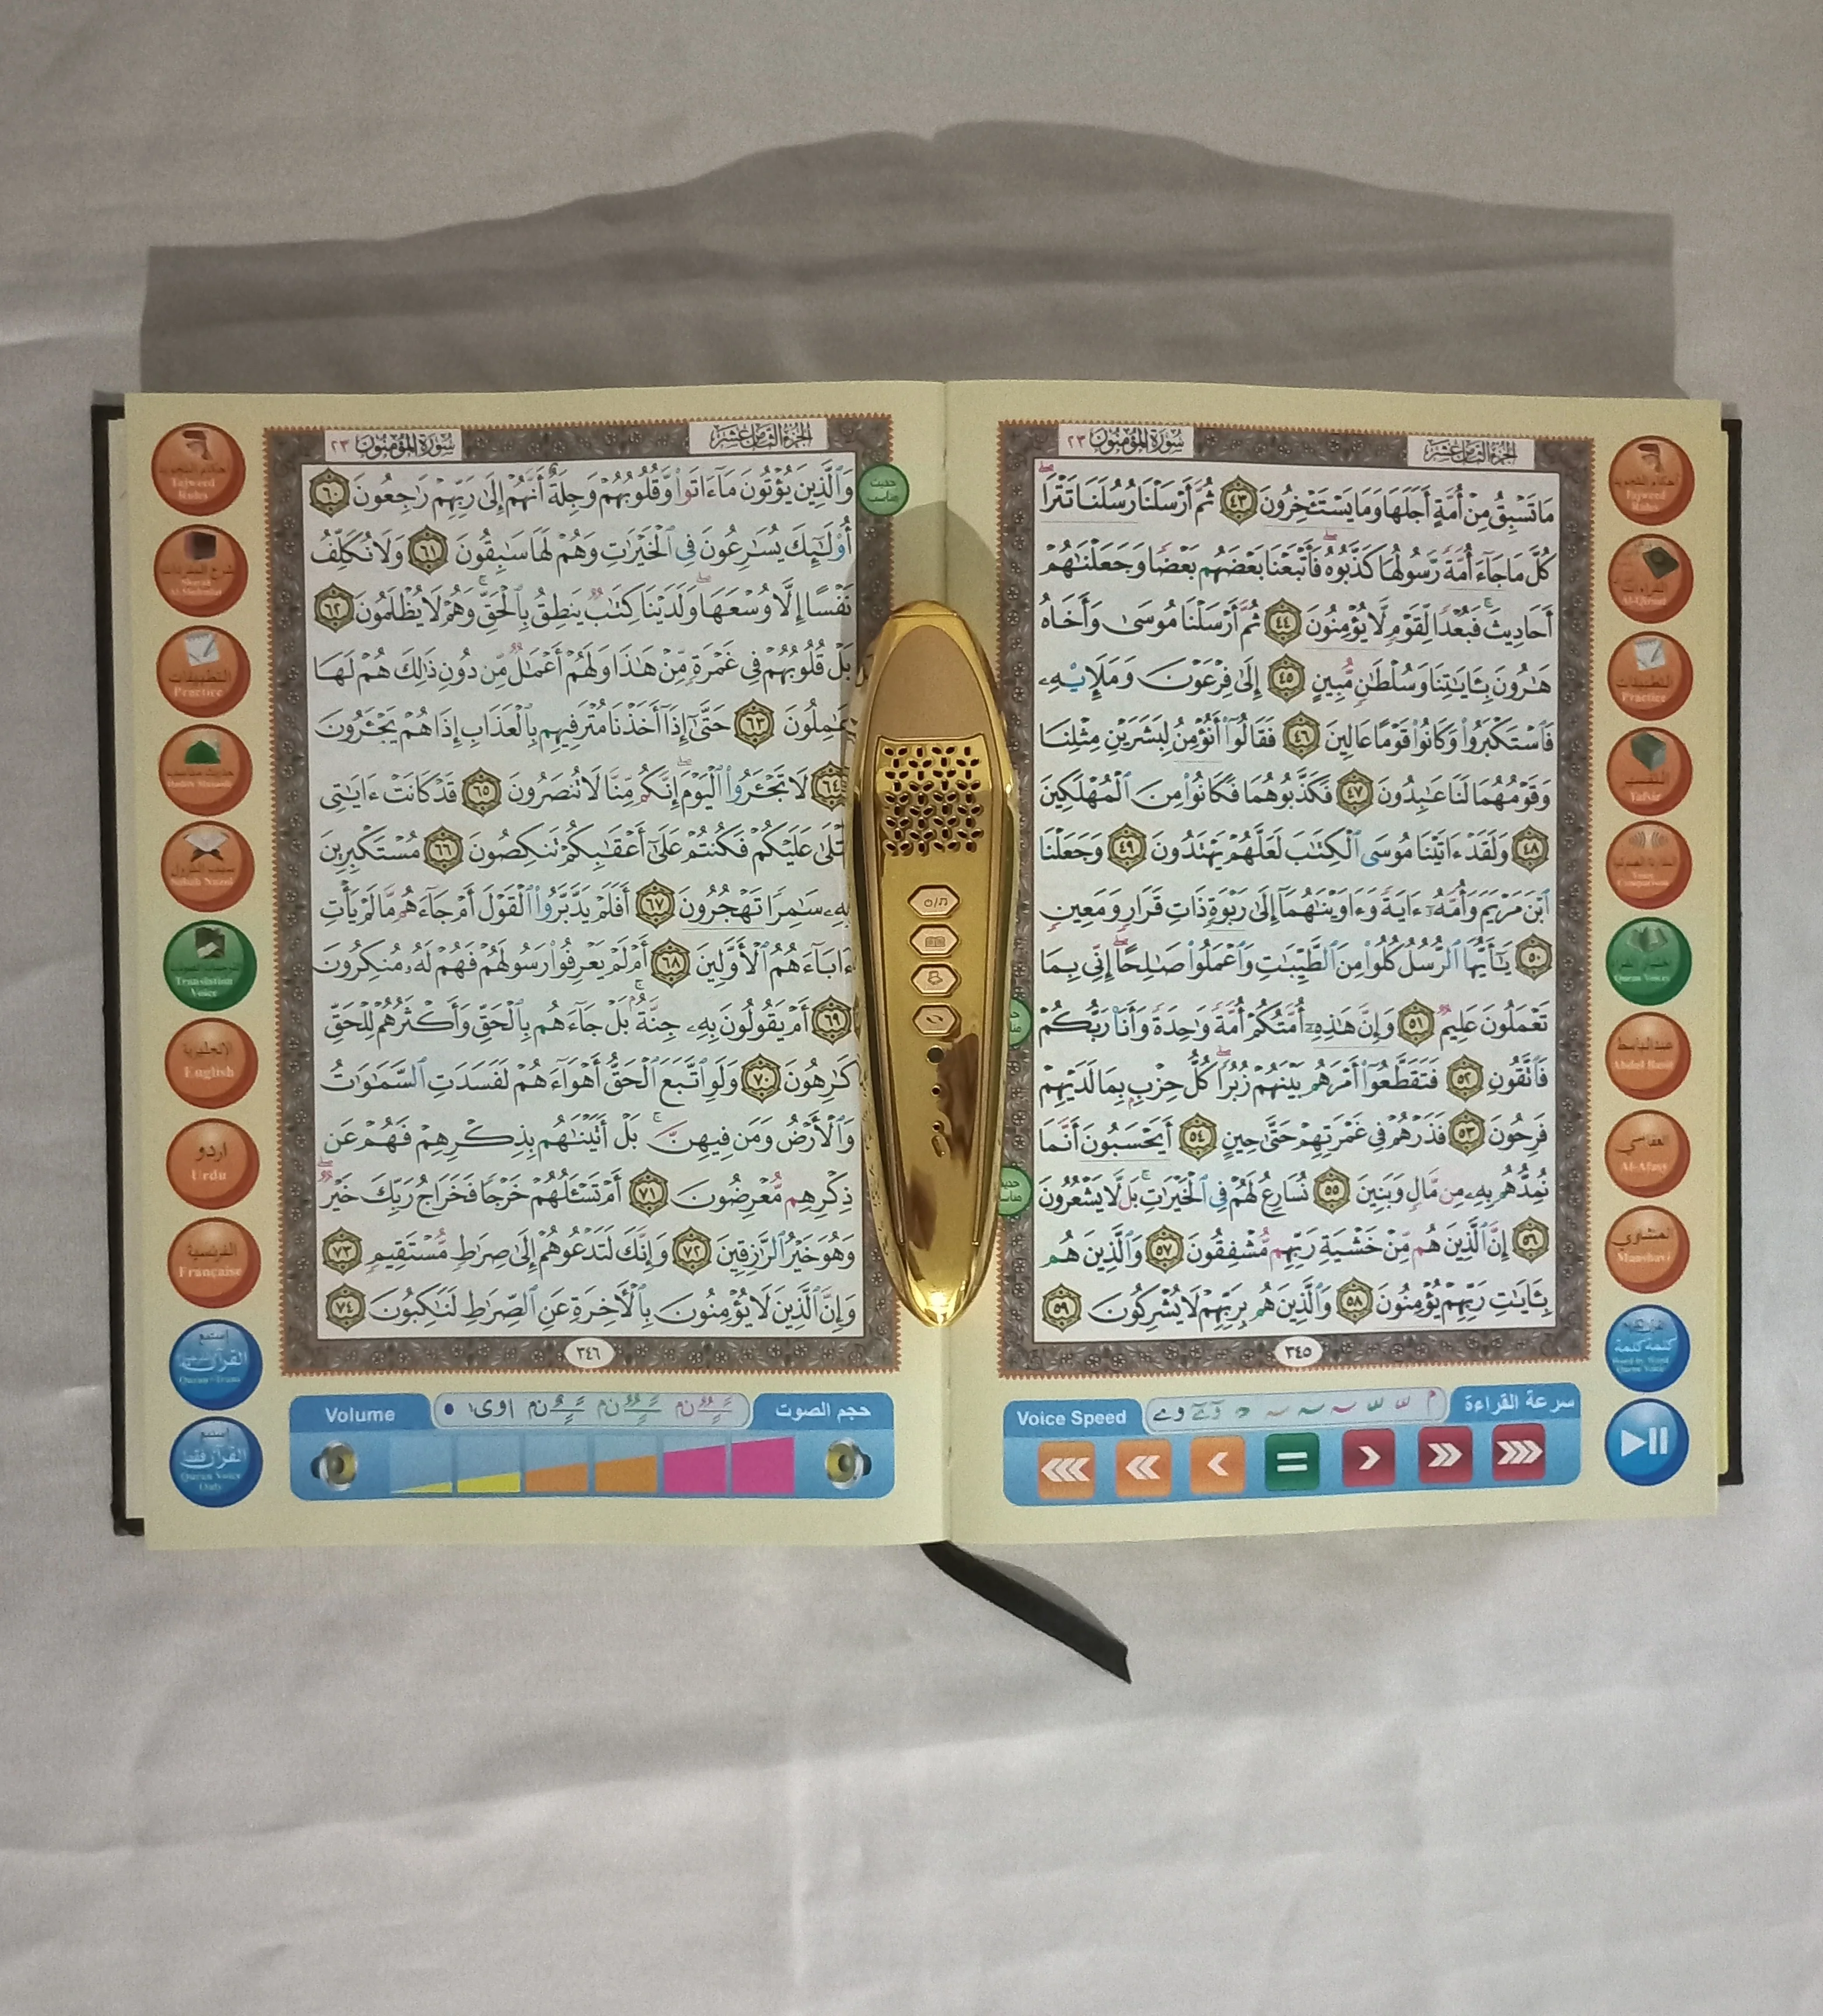 سورة المؤمنون ٢٣
الجزء الثامن عشر
مَا تَسْبِقُ مِنْ أُمَّةٍ أَجَلَهَا وَمَا يَسْتَـْٔخِرُونَ ٤٣ ثُمَّ أَرْسَلْنَا رُسُلَنَا تَتْرَا
كُلَّ مَا جَآءَ أُمَّةً رَّسُولُهَا كَذَّبُوهُ فَأَتْبَعْنَا بَعْضَهُم بَعْضًا وَجَعَلْنَـٰهُمْ
أَحَادِيثَ فَبُعْدًا لِّقَوْمٍ لَّا يُؤْمِنُونَ ٤٤ ثُمَّ أَرْسَلْنَا مُوسَىٰ وَأَخَاهُ
هَـٰرُونَ بِـَٔايَـٰتِنَا وَسُلْطَـٰنٍ مُّبِينٍ ٤٥ إِلَىٰ فِرْعَوْنَ وَمَلَإِي۟هِۦ
فَٱسْتَكْبَرُوا۟ وَكَانُوا۟ قَوْمًا عَالِينَ ٤٦ فَقَالُوٓا۟ أَنُؤْمِنُ لِبَشَرَيْنِ مِثْلِنَا
وَقَوْمُهُمَا لَنَا عَـٰبِدُونَ ٤٧ فَكَذَّبُوهُمَا فَكَانُوا۟ مِنَ ٱلْمُهْلَكِينَ
٤٨ وَلَقَدْ ءَاتَيْنَا مُوسَى ٱلْكِتَـٰبَ لَعَلَّهُمْ يَهْتَدُونَ ٤٩ وَجَعَلْنَا
ٱبْنَ مَرْيَمَ وَأُمَّهُۥٓ ءَايَةً وَءَاوَيْنَـٰهُمَآ إِلَىٰ رَبْوَةٍ ذَاتِ قَرَارٍ وَمَعِينٍ
٥٠ يَـٰٓأَيُّهَا ٱلرُّسُلُ كُلُوا۟ مِنَ ٱلطَّيِّبَـٰتِ وَٱعْمَلُوا۟ صَـٰلِحًا إِنِّى بِمَا
تَعْمَلُونَ عَلِيمٌ ٥١ وَإِنَّ هَـٰذِهِۦٓ أُمَّتُكُمْ أُمَّةً وَٰحِدَةً وَأَنَا۠ رَبُّكُمْ
فَٱتَّقُونِ ٥٢ فَتَقَطَّعُوٓا۟ أَمْرَهُم بَيْنَهُمْ زُبُرًا كُلُّ حِزْبٍۭ بِمَا لَدَيْهِمْ
فَرِحُونَ ٥٣ فَذَرْهُمْ فِى غَمْرَتِهِمْ حَتَّىٰ حِينٍ ٥٤ أَيَحْسَبُونَ أَنَّمَا
نُمِدُّهُم بِهِۦ مِن مَّالٍ وَبَنِينَ ٥٥ نُسَارِعُ لَهُمْ فِى ٱلْخَيْرَٰتِ بَل لَّا يَشْعُرُونَ
٥٦ إِنَّ ٱلَّذِينَ هُم مِّنْ خَشْيَةِ رَبِّهِم مُّشْفِقُونَ ٥٧ وَٱلَّذِينَ هُم
بِـَٔايَـٰتِ رَبِّهِمْ يُؤْمِنُونَ ٥٨ وَٱلَّذِينَ هُم بِرَبِّهِمْ لَا يُشْرِكُونَ ٥٩
٣٤٥
أحكام التجويد
Tajweed Rules
Al-Qiraat
التطبيقات
Practice
التفسير
Tafsir
Voice Comparison
Quran Voices
عبدالباسط
Abdul Basit
العفاسي
Al-Afasy
المنشاوي
Manshavi
كلمة كلمة
Word by Word
Quran Voice
Voice Speed
سرعة القراءة
سورة المؤمنون ٢٣
الجزء الثامن عشر
حديث مناسب
وَٱلَّذِينَ يُؤْتُونَ مَآ ءَاتَوا۟ وَّقُلُوبُهُمْ وَجِلَةٌ أَنَّهُمْ إِلَىٰ رَبِّهِمْ رَٰجِعُونَ ٦٠
أُو۟لَـٰٓئِكَ يُسَـٰرِعُونَ فِى ٱلْخَيْرَٰتِ وَهُمْ لَهَا سَـٰبِقُونَ ٦١ وَلَا نُكَلِّفُ
نَفْسًا إِلَّا وُسْعَهَا وَلَدَيْنَا كِتَـٰبٌ يَنطِقُ بِٱلْحَقِّ وَهُمْ لَا يُظْلَمُونَ ٦٢
بَلْ قُلُوبُهُمْ فِى غَمْرَةٍ مِّنْ هَـٰذَا وَلَهُمْ أَعْمَـٰلٌ مِّن دُونِ ذَٰلِكَ هُمْ لَهَا
عَـٰمِلُونَ ٦٣ حَتَّىٰٓ إِذَآ أَخَذْنَا مُتْرَفِيهِم بِٱلْعَذَابِ إِذَا هُمْ يَجْـَٔرُونَ
٦٤ لَا تَجْـَٔرُوا۟ ٱلْيَوْمَ إِنَّكُم مِّنَّا لَا تُنصَرُونَ ٦٥ قَدْ كَانَتْ ءَايَـٰتِى
تُتْلَىٰ عَلَيْكُمْ فَكُنتُمْ عَلَىٰٓ أَعْقَـٰبِكُمْ تَنكِصُونَ ٦٦ مُسْتَكْبِرِينَ
بِهِۦ سَـٰمِرًا تَهْجُرُونَ ٦٧ أَفَلَمْ يَدَّبَّرُوا۟ ٱلْقَوْلَ أَمْ جَآءَهُم مَّا لَمْ يَأْتِ
ءَابَآءَهُمُ ٱلْأَوَّلِينَ ٦٨ أَمْ لَمْ يَعْرِفُوا۟ رَسُولَهُمْ فَهُمْ لَهُۥ مُنكِرُونَ
٦٩ أَمْ يَقُولُونَ بِهِۦ جِنَّةٌۢ بَلْ جَآءَهُم بِٱلْحَقِّ وَأَكْثَرُهُمْ لِلْحَقِّ
كَـٰرِهُونَ ٧٠ وَلَوِ ٱتَّبَعَ ٱلْحَقُّ أَهْوَآءَهُمْ لَفَسَدَتِ ٱلسَّمَـٰوَٰتُ
وَٱلْأَرْضُ وَمَن فِيهِنَّ بَلْ أَتَيْنَـٰهُم بِذِكْرِهِمْ فَهُمْ عَن
ذِكْرِهِم مُّعْرِضُونَ ٧١ أَمْ تَسْـَٔلُهُمْ خَرْجًا فَخَرَاجُ رَبِّكَ خَيْرٌ
وَهُوَ خَيْرُ ٱلرَّٰزِقِينَ ٧٢ وَإِنَّكَ لَتَدْعُوهُمْ إِلَىٰ صِرَٰطٍ مُّسْتَقِيمٍ ٧٣
وَإِنَّ ٱلَّذِينَ لَا يُؤْمِنُونَ بِٱلْـَٔاخِرَةِ عَنِ ٱلصِّرَٰطِ لَنَـٰكِبُونَ ٧٤
٣٤٦
أحكام التجويد
Tajweed Rules
التطبيقات
Practice
Sabab Nuzul
Translation Voice
الإنجليزية
English
اردو
Urdu
الفرنسية
Française
إستمع
القرآن
إستمع
القرآن فقط
Quran Voice Only
Volume
حجم الصوت